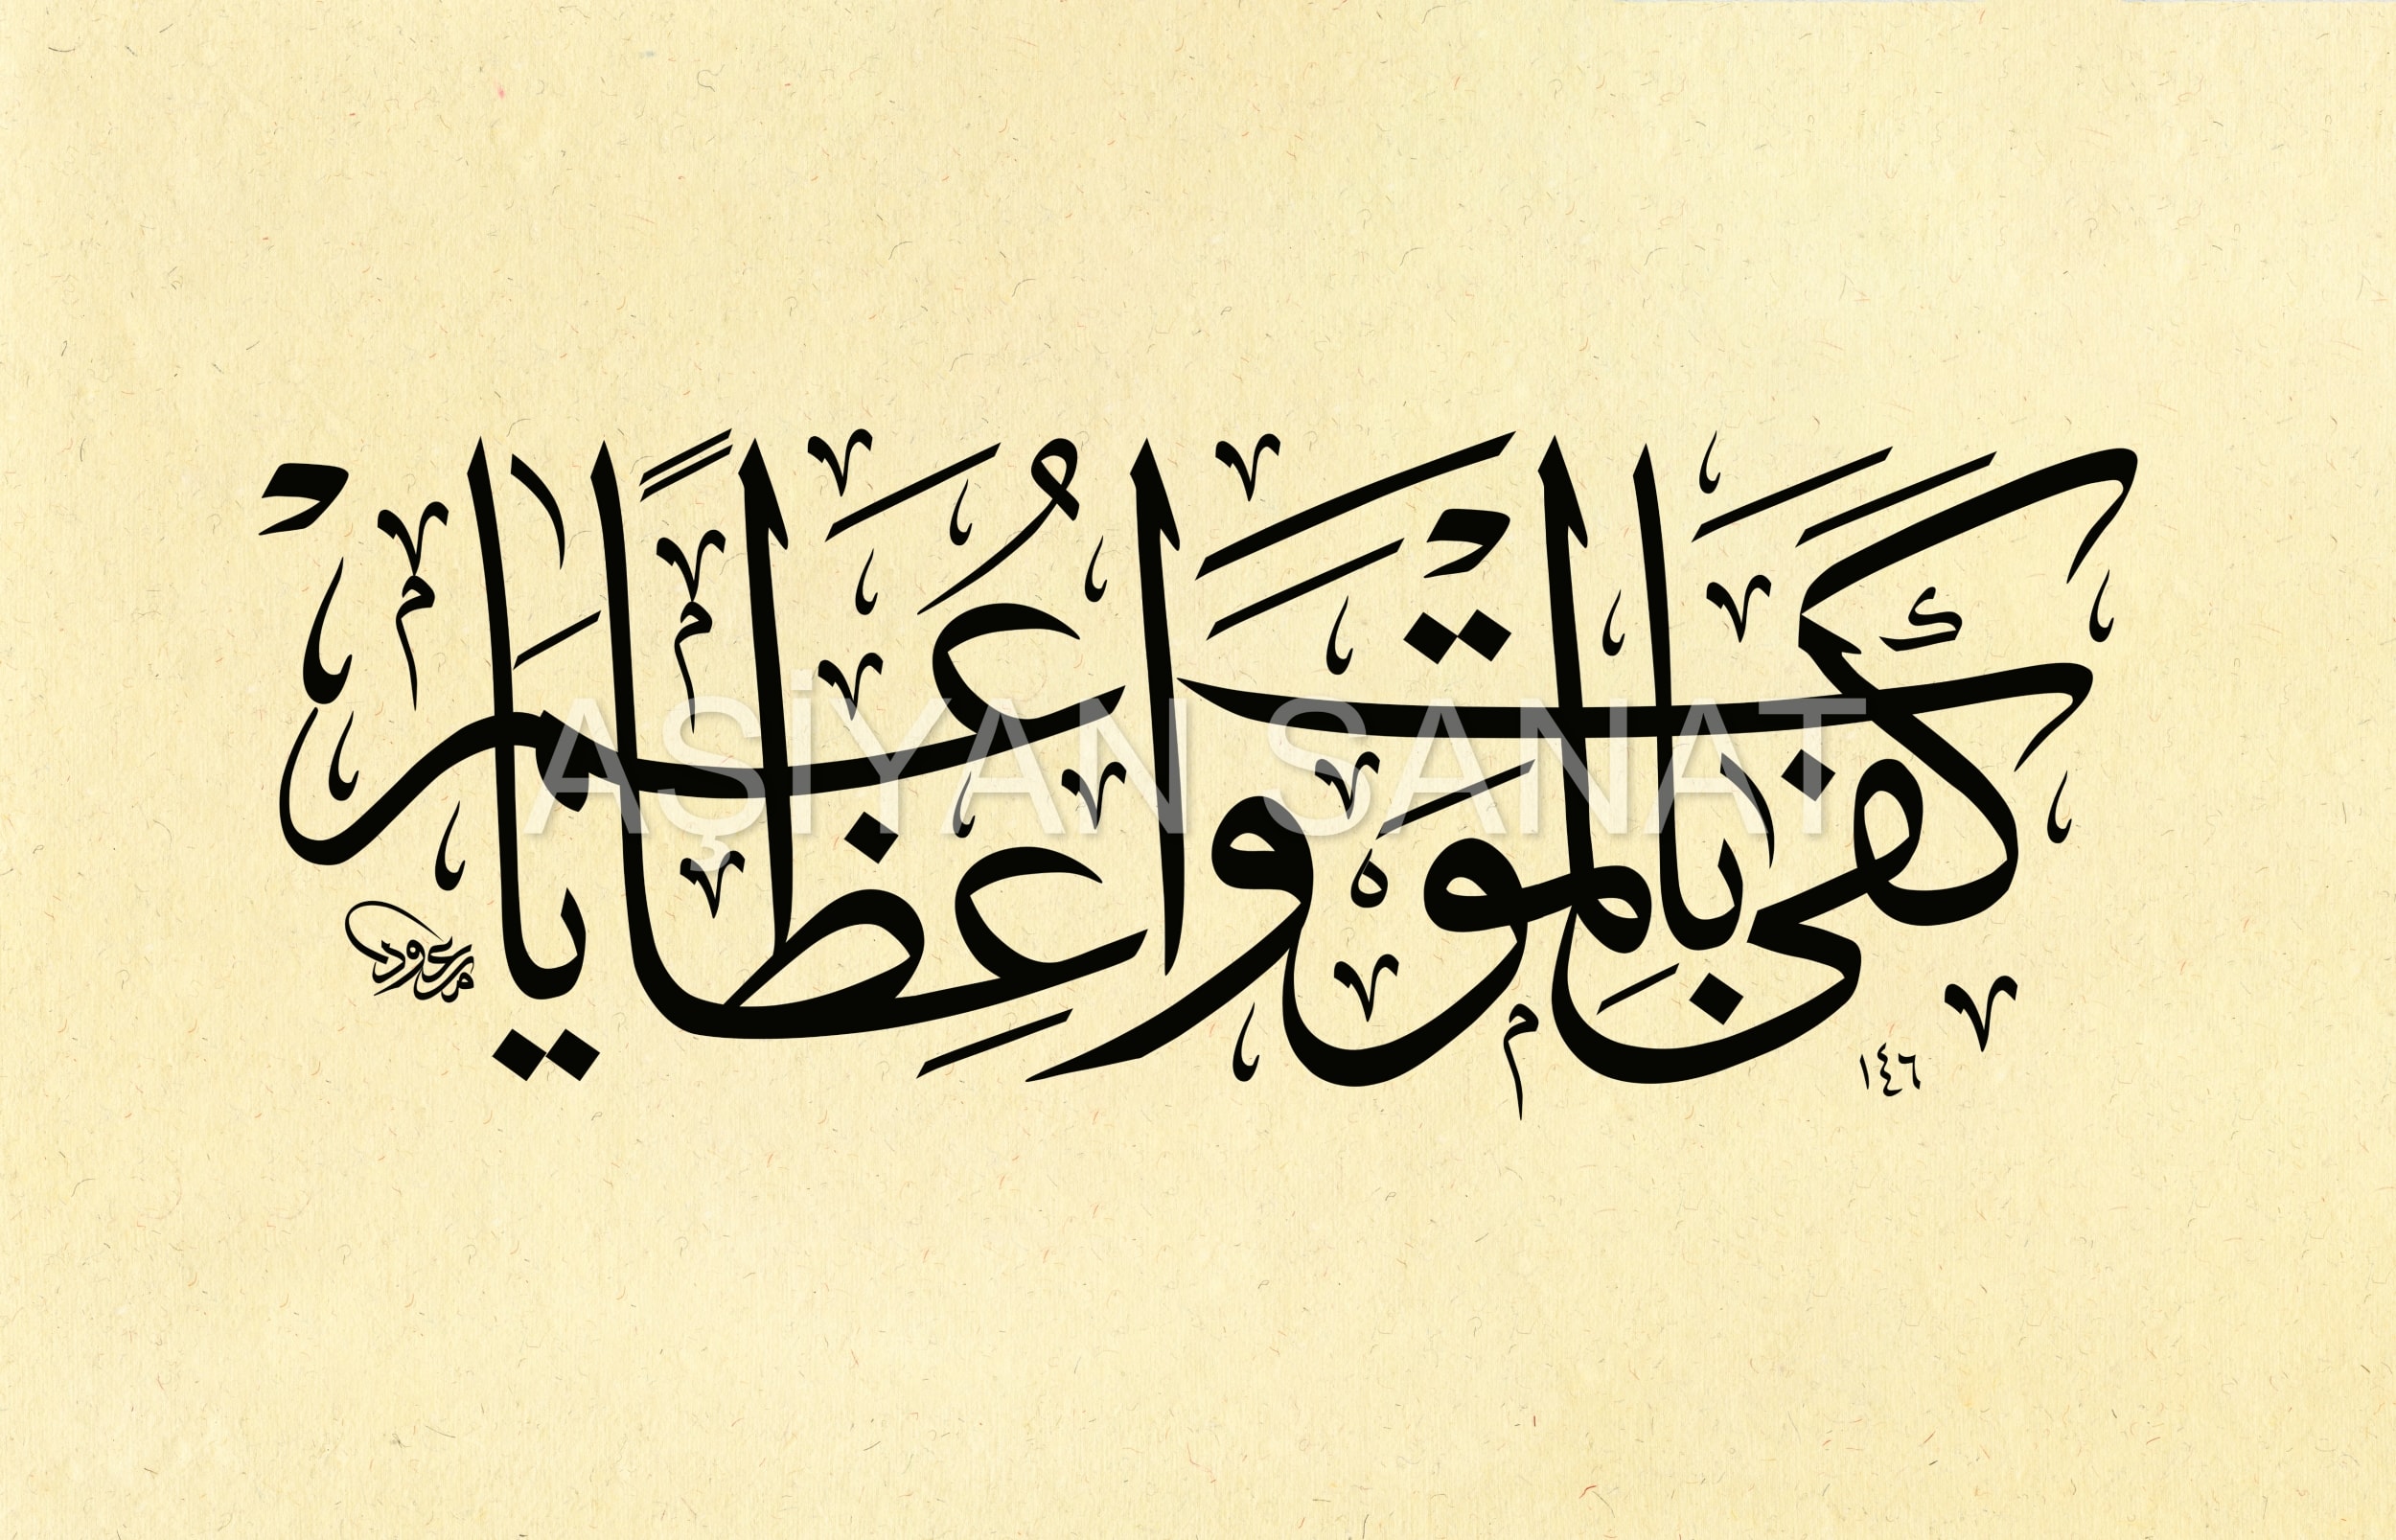 كَفَى بِالْمَوْتِ وَاعِظًا يَا عُمَرُ
١٤٦
AŞİYAN SANAT